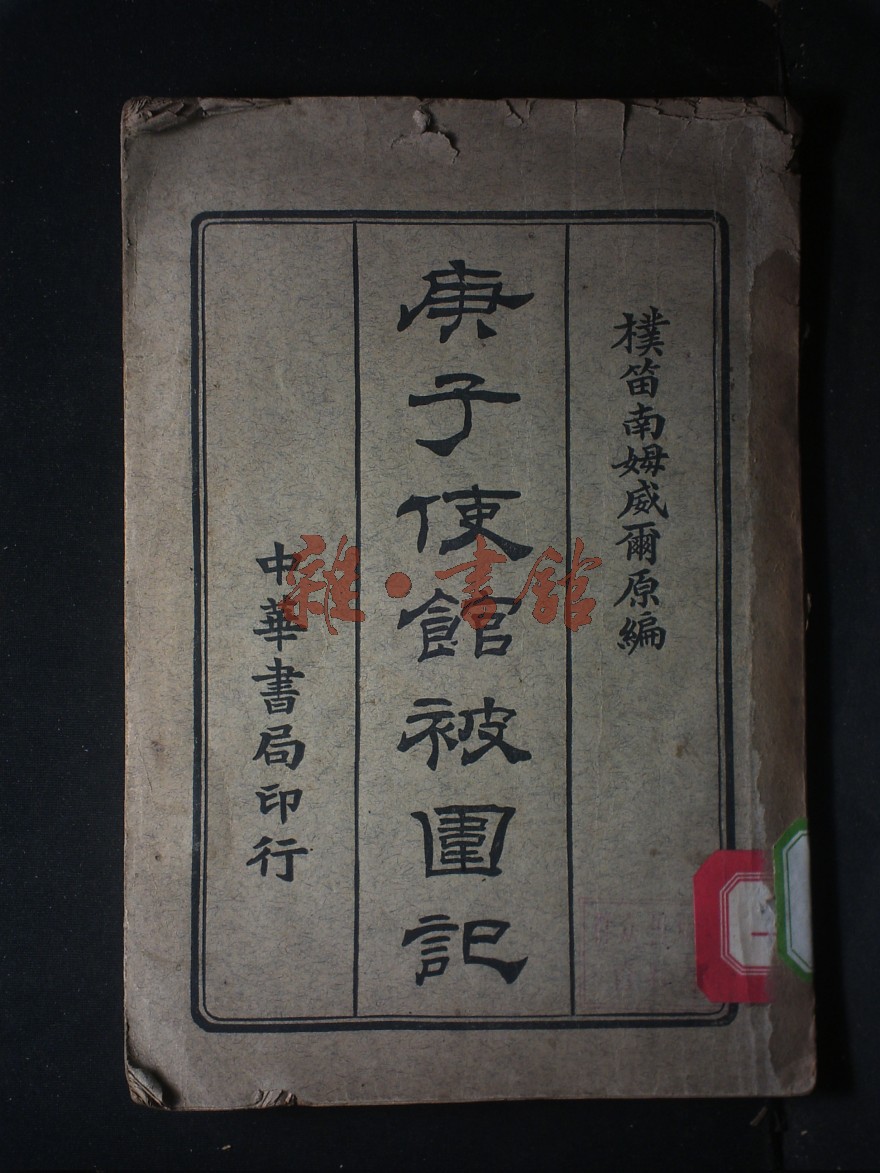 樸笛南姆威爾原編
庚子使館被圍記
中華書局印行
雜·書館
一